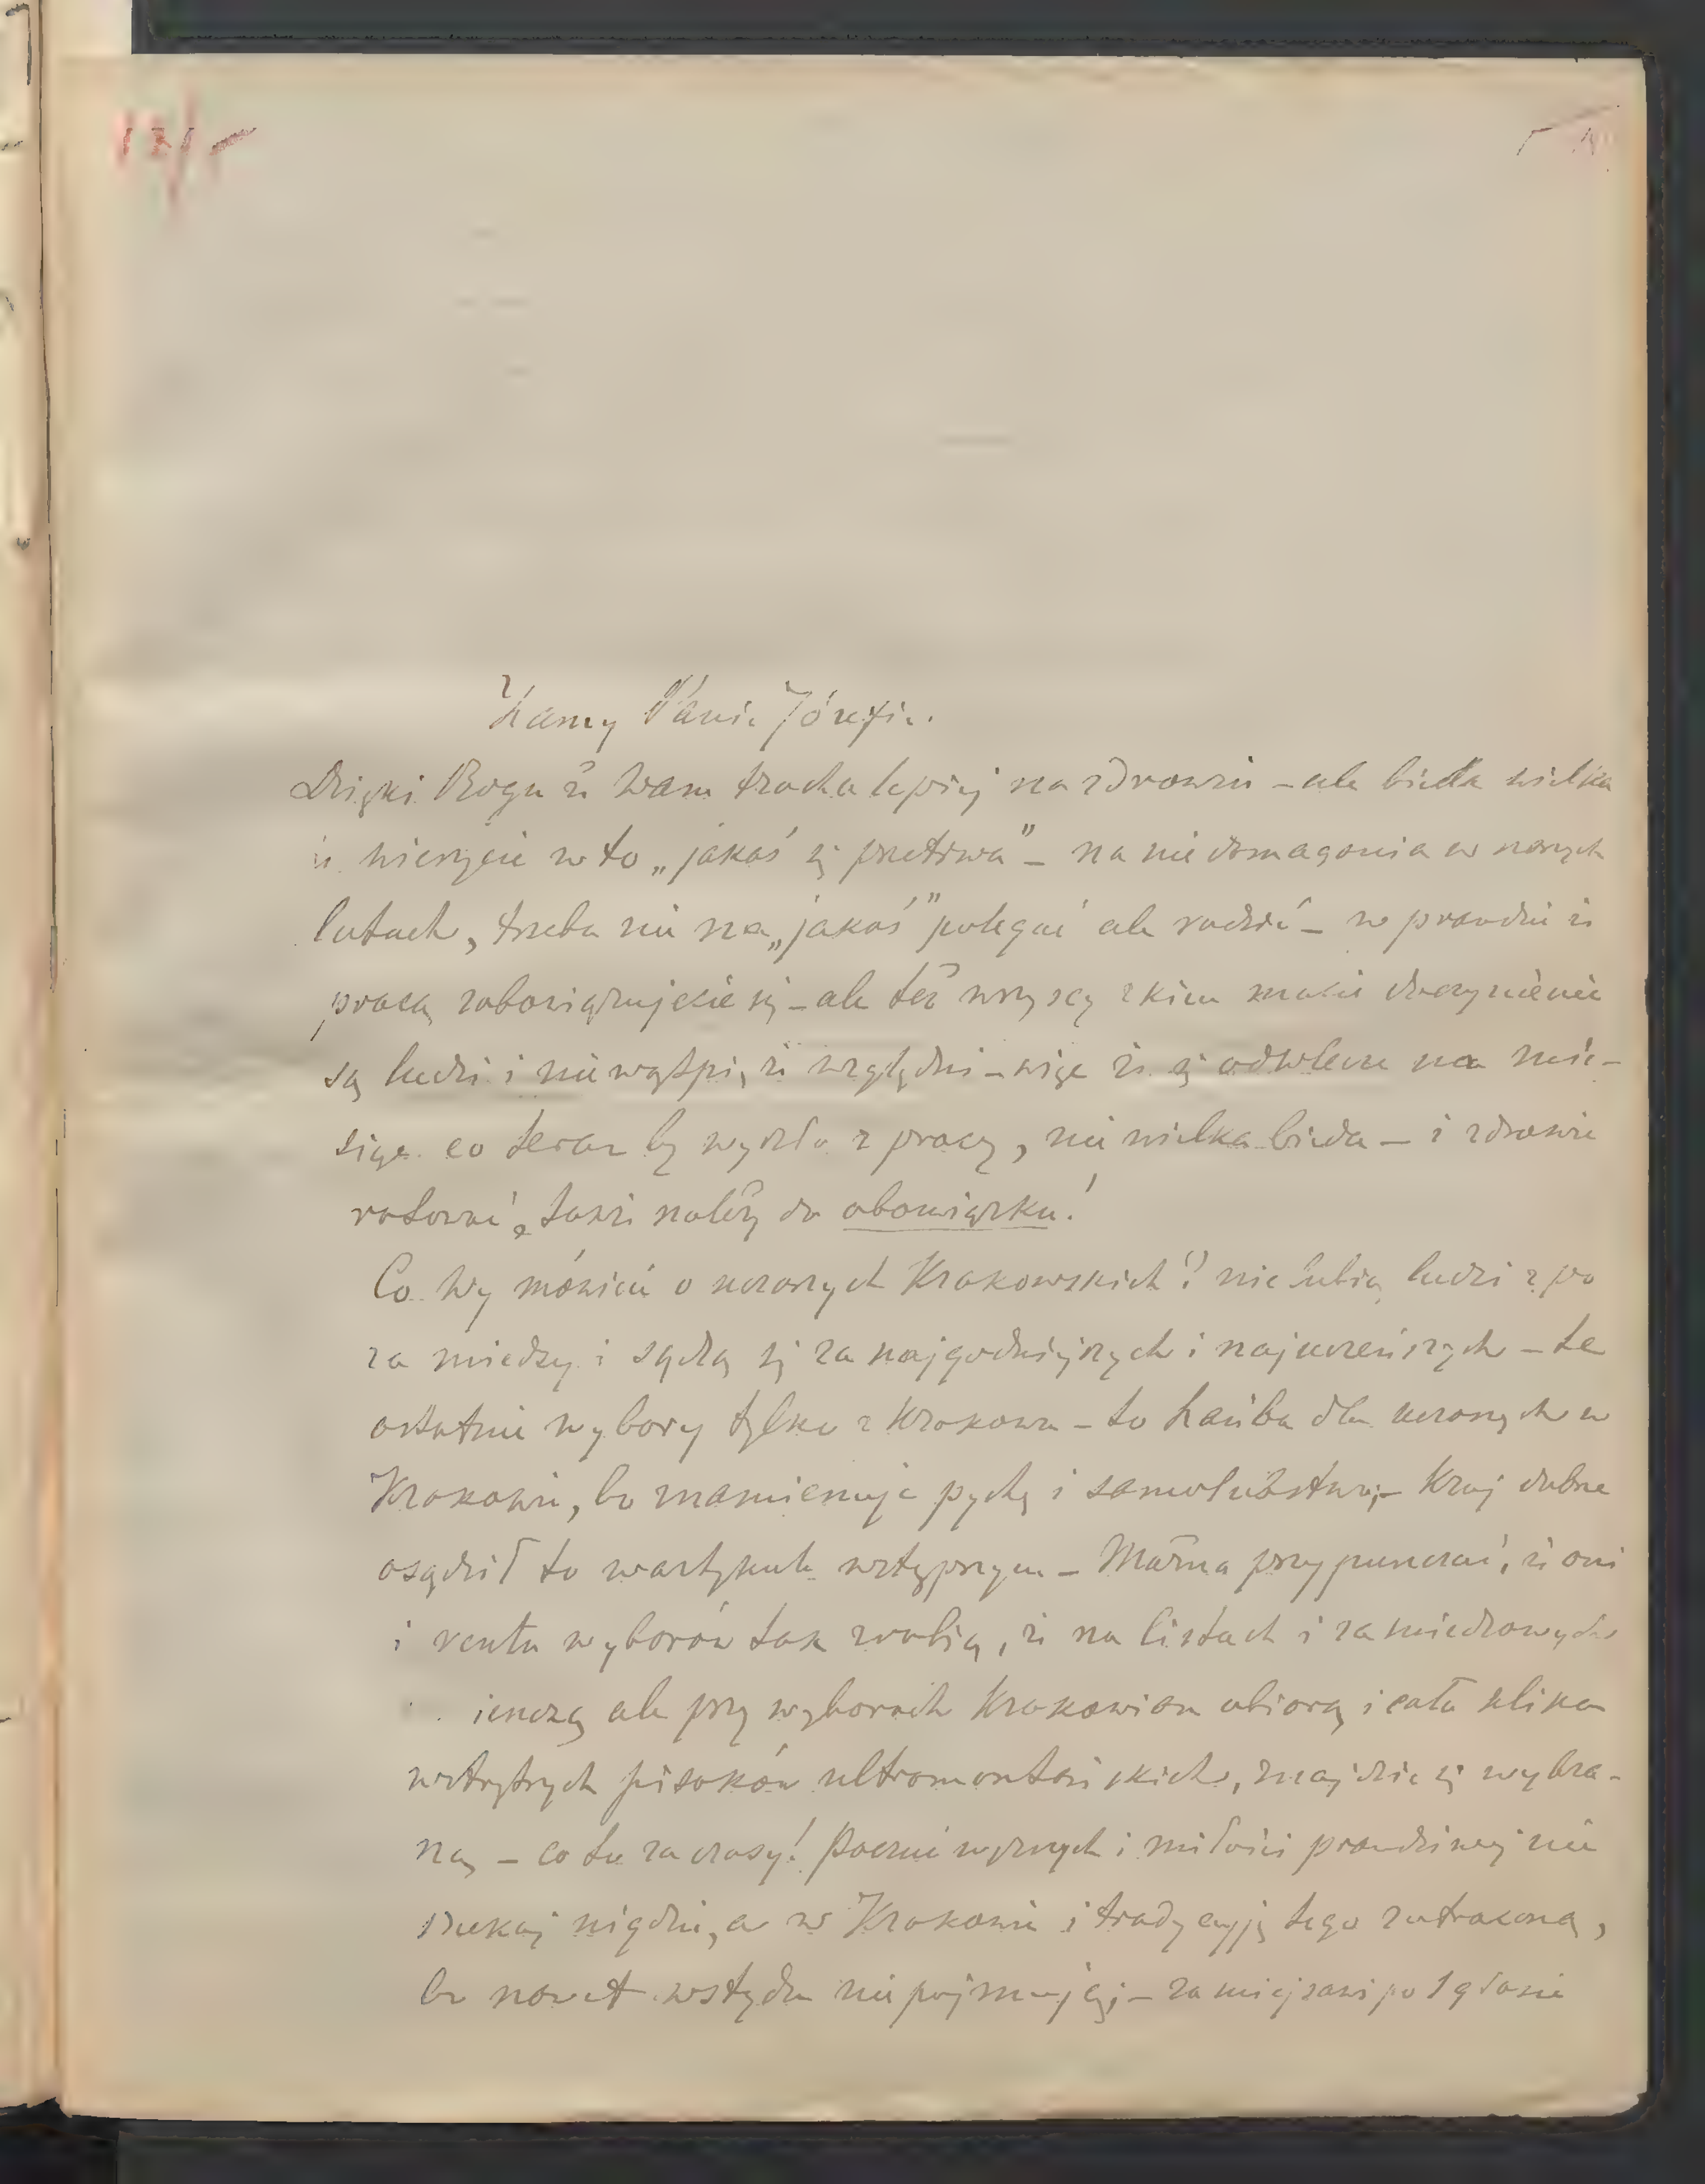 Kamy Panie Józefie.
Dzięki Bogu że Wam trocha lepiej na zdrowiu – ale bieda wielka
że wierzycie w to „jakoś się przetrwa” – na niedomagania w naszych
latach, trzeba nie na „jakoś” polegać ale radzić – w prawdzie iż
pracą zobowiązujecie się – ale też wszyscy z kim macie do czynienia
są ludzi i nie wątpię, że względni – więc że się odwlecze na mie-
siąc co teraz by wyszło z pracy, nie wielka bieda – i zdrowie
ratować, takżi należy do obowiązku!
Co Wy mówicie o uczonych Krakowskich? nie lubią ludzi z po
za miedzy i sądzą się za najgodniejszych i najuczeńszych – te
ostatnie wybory tylko z Krakowa – to hańba dla uczonych w
Krakowie, bo znamienuje pychę i samolubstwo; – Kraj dobrze
osądził to w artykule wstępnym – Można przypuszczać, że oni
i resztę wyborów tak zrobią, że na listach i zamiedzowych
ale przy wyborach Krakowian obiorą i cała klika
wstrętnych pisaków ultramontańskich, znajdzie się wybra-
ną – co to za czasy! Poczuć wyższych i miłości prawdziwej nie
szukaj nigdzie, a w Krakowie i tradycyję tego zatracono,
bo nawet wstydu nie pojmują; – za miejscowi po 1 głosie